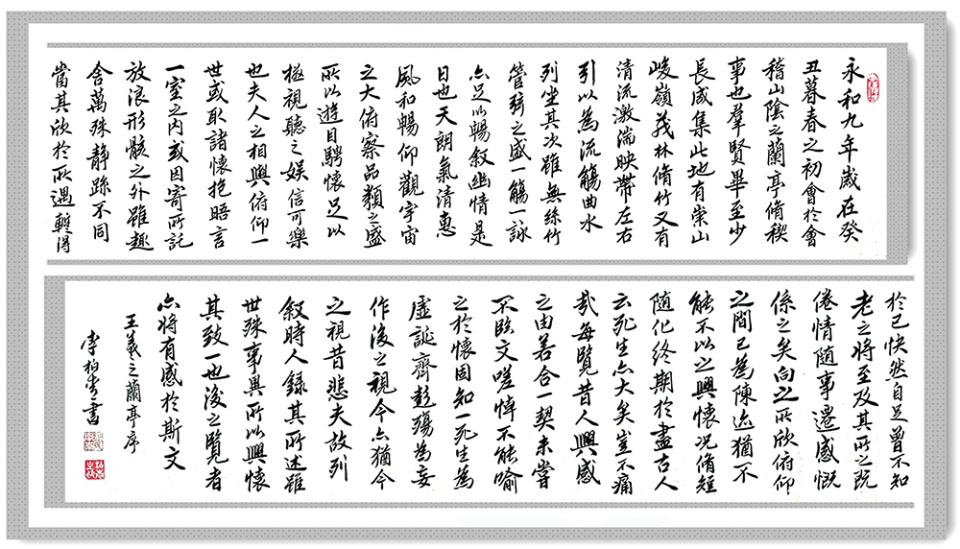 永和九年歲在癸
丑暮春之初會於會
稽山陰之蘭亭脩稧
事也羣賢畢至少
長咸集此地有崇山
峻嶺茂林脩竹又有
清流激湍映帶左右
引以為流觴曲水
列坐其次雖無絲竹
管弦之盛一觴一詠
亦足以暢敘幽情是
日也天朗氣清惠
風和暢仰觀宇宙
之大俯察品類之盛
所以遊目騁懷足以
極視聽之娛信可樂
也夫人之相與俯仰一
世或取諸懷抱晤言
一室之內或因寄所託
放浪形骸之外雖趣
舍萬殊靜躁不同
當其欣於所遇暫得
於己快然自足曾不知
老之將至及其所之既
倦情隨事遷感慨
係之矣向之所欣俯仰
之間已為陳迹猶不
能不以之興懷況脩短
隨化終期於盡古人
云死生亦大矣豈不痛
哉每覽昔人興感
之由若合一契未嘗
不臨文嗟悼不能喻
之於懷固知一死生為
虛誕齊彭殤為妄
作後之視今亦猶今
之視昔悲夫故列
敘時人錄其所述雖
世殊事異所以興懷
其致一也後之覽者
亦將有感於斯文
王羲之蘭亭序
李柏青書